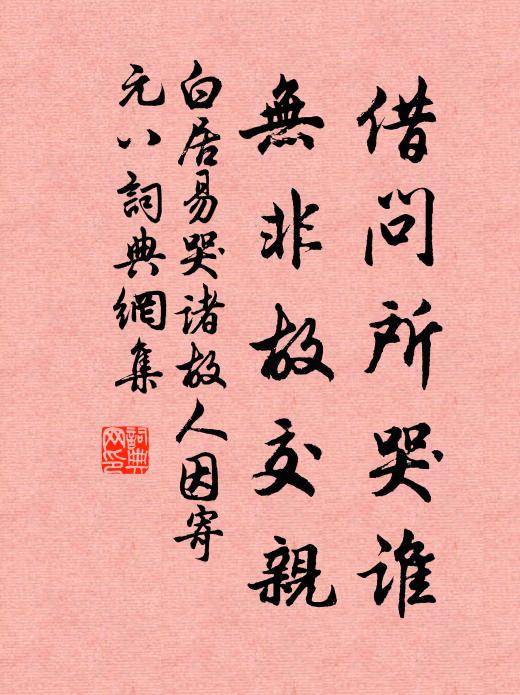 借問所哭誰
無非故交親
白居易哭諸故人因寄
元八詞典網集
詞典
网印